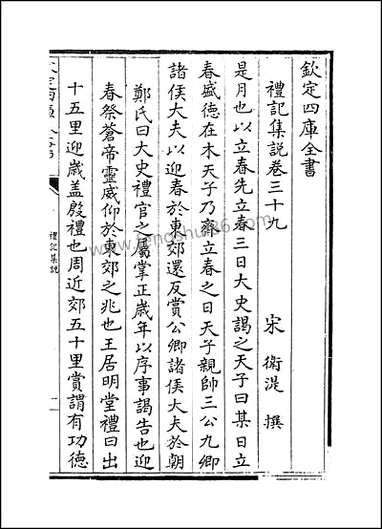 欽定四庫全書
禮記集說卷三十九
宋 衛湜 撰
是月也以立春先立春三日大史謁之天子曰某日立
春盛德在木天子乃齊立春之日天子親帥三公九卿
諸侯大夫以迎春於東郊還反賞公卿諸侯大夫於朝
鄭氏曰大史禮官之屬掌正歲年以序事謁告也迎
春祭蒼帝靈威仰於東郊之兆也王居明堂禮曰出
十五里迎歲盖殷禮也周近郊五十里賞謂有功德
禮記集說